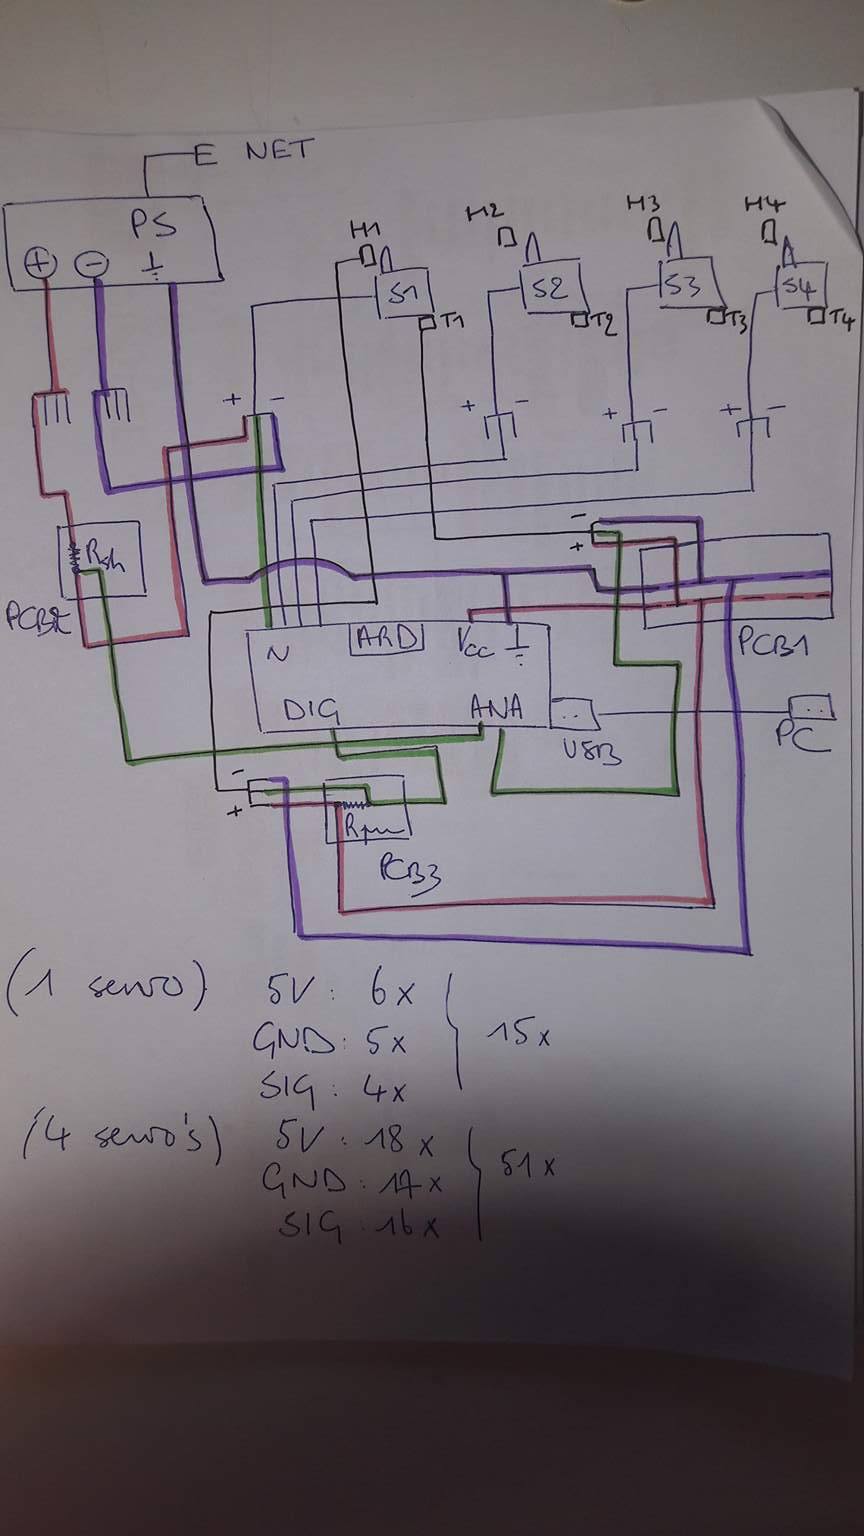 E NET
PS
+ - ⏚
H1 H2 H3 H4
S1 S2 S3 S4
T1 T2 T3 T4
+ - + - + - + -
Rsh
-
+
N ARD Vcc ⏚
PCB1
DIG ANA
USB
PC
-
+
PCB3
(1 servo) 5V: 6x
GND: 5x } 15x
SIG: 4x
(4 servo's) 5V: 18x
GND: 17x } 51x
SIG: 16x